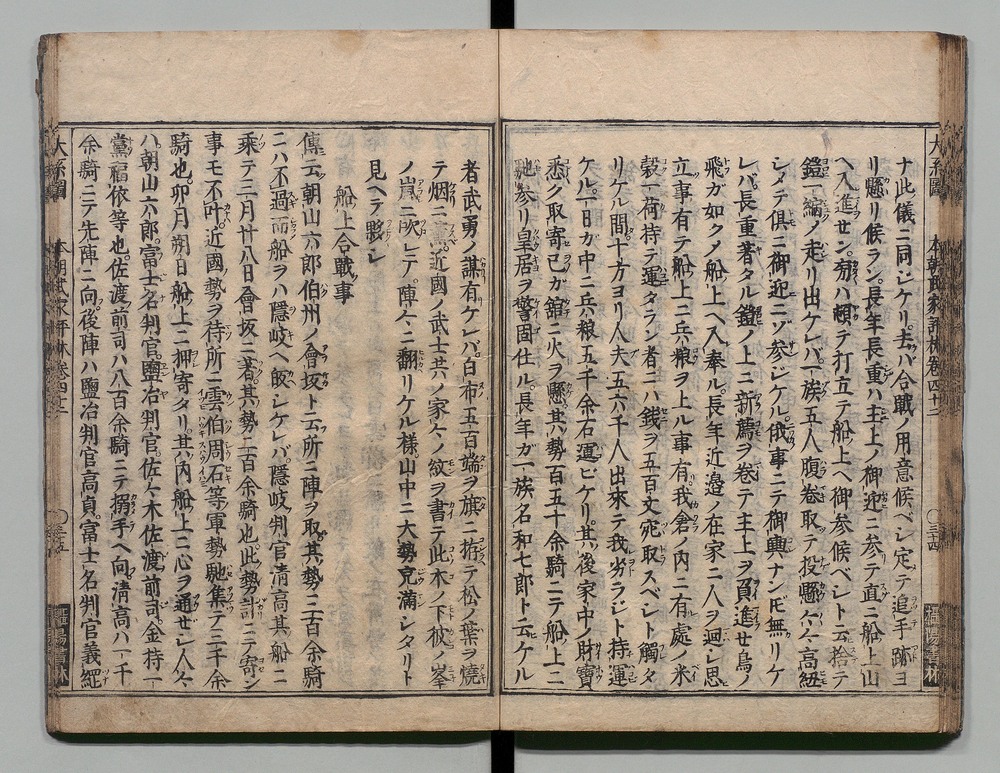 ナ此儀ニ同シケリ去ハ合戰ノ用意候ベシ定テ追手跡ヨ
リ懸リ候ラン長年長重ハ主上ノ御迎ニ参テ直ニ船上山
ヘ入進セン旁ハ頓テ打立テ船上ヘ御参候ベシト云捨テ
鎧一縮ノ走リ出ケレバ一族五人腹巻取テ投懸々々高紐
シメテ俱ニ御迎ニゾ参ジケル俄事ニテ御輿ナンド無リケ
レバ長重著タル鎧ノ上ニ新薦ヲ卷テ主上ヲ負進セ鳥ノ
飛ガ如クメ船上ヘ入奉ル長年近邉ノ在家ニ人ヲ迴シ思
立事有テ船上ニ兵粮ヲ上ル事有我倉ノ内ニ有處ノ米
穀一荷持テ運タラン者ニハ錢ヲ五百文宛取スベシト觸タ
リケル間十方ヨリ人夫五六千人出來テ我劣ラジト持運
ケル一日カ中ニ兵粮五千余石運ビケリ其後家中ノ財寶
悉ク取寄己ガ舘ニ火ヲ懸其勢百五十余騎ニテ船上ニ
馳参リ皇居ヲ警固仕ル長年ガ一族名和七郎ト云ケル
大系圖
本朝武家評林卷四十二
三十四
攝陽書林
者武勇ノ謀有ケレバ白布五百端ヲ旗ニ拵テ松ノ葉ヲ燒
テ烟ニ薫近國ノ武士共ノ家々ノ紋ヲ書テ此木ノ下彼ノ峯
ノ嵐ニ吹レテ陣々ニ翻リケル様山中ニ大勢充滿シタリト
見ヘテ夥シ
船上合戰事
傳云朝山六郎伯州ノ會坂ト云所ニ陣ヲ取其勢二百余騎
ニハ不過而船ヲハ隱岐ヘ皈シケレバ隱岐判官清高其船ニ
乘テ三月廿八日會坂ニ著其勢二百余騎也此勢計ニテ寄ン
事モ不叶近國勢ヲ待所ニ雲伯周石等軍勢馳集テ三千余
騎也卯月朔日船上ニ押寄タリ其内船上ニ心ヲ通ゼシ人々
ハ朝山六郎富士名判官鹽冶判官佐々木佐渡前司金持一
黨福依等也佐渡前司ハ八百余騎ニテ搦手ヘ向清高ハ一千
余騎ニテ先陣ニ向後陣ハ鹽冶判官高貞富士名判官義綱
大系圖
本朝武家評林卷四十二
三十五
攝陽書林